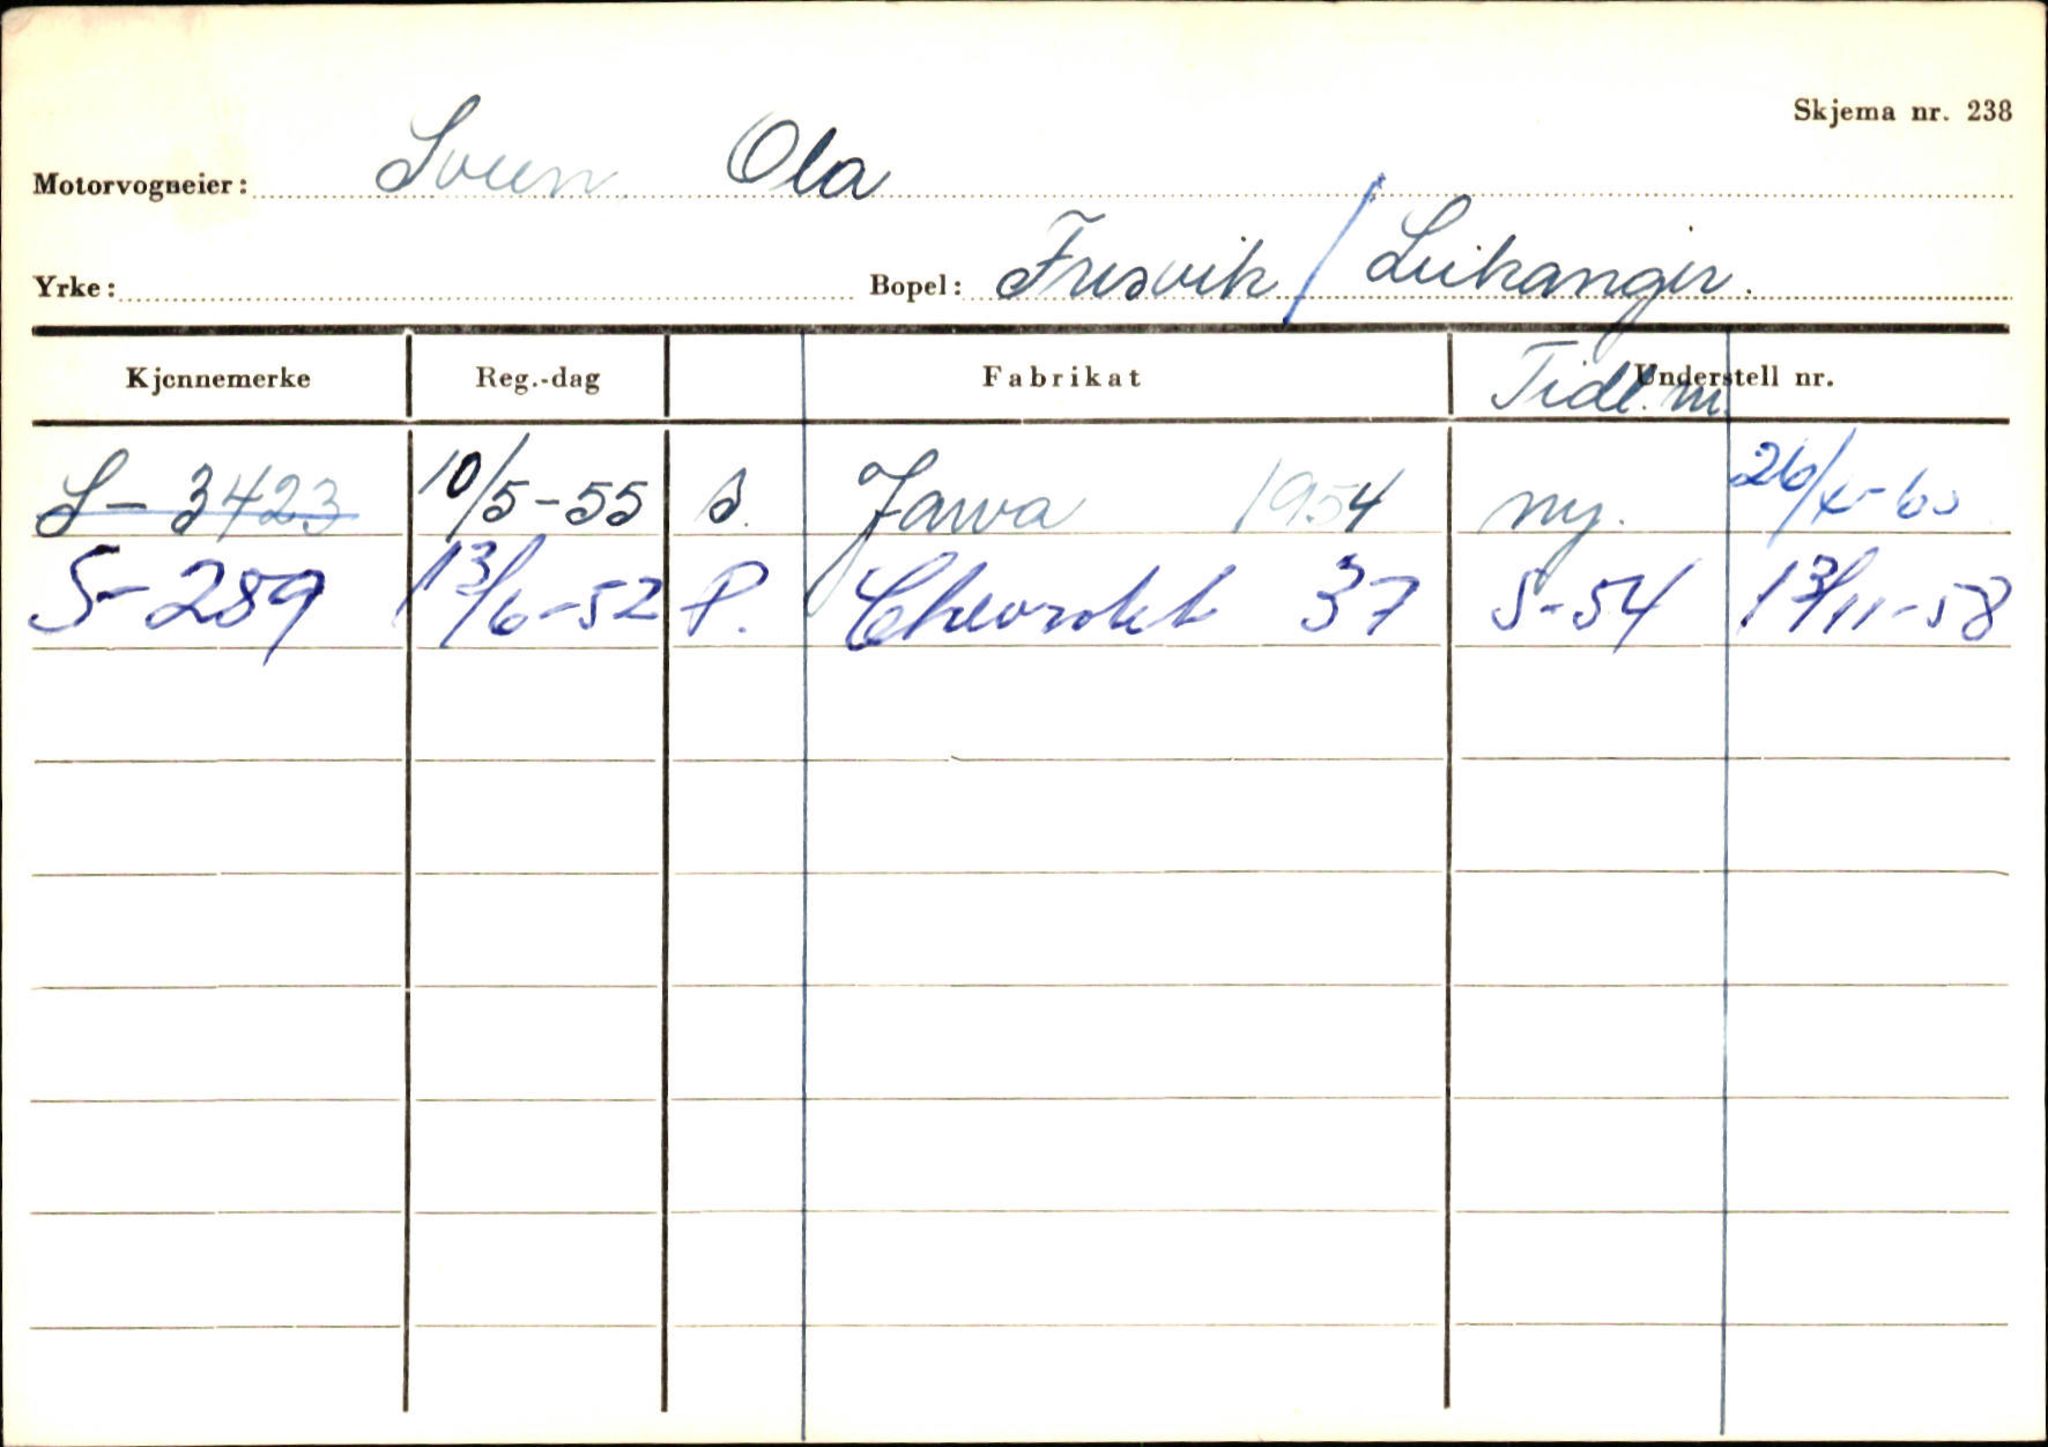 Skjema nr. 238
Motorvogneier: Sveen Ola
Yrke: Bopel: Fresvik / Leikanger.
Kjennemerke Reg.-dag Fabrikat Tidl. nr. Understell nr.
S- 3423 10/5-55 S. Jawa 1954 ny. 26/4-60
S-289 13/6-52 P. Chevrolet 37 S-54 13/11-58